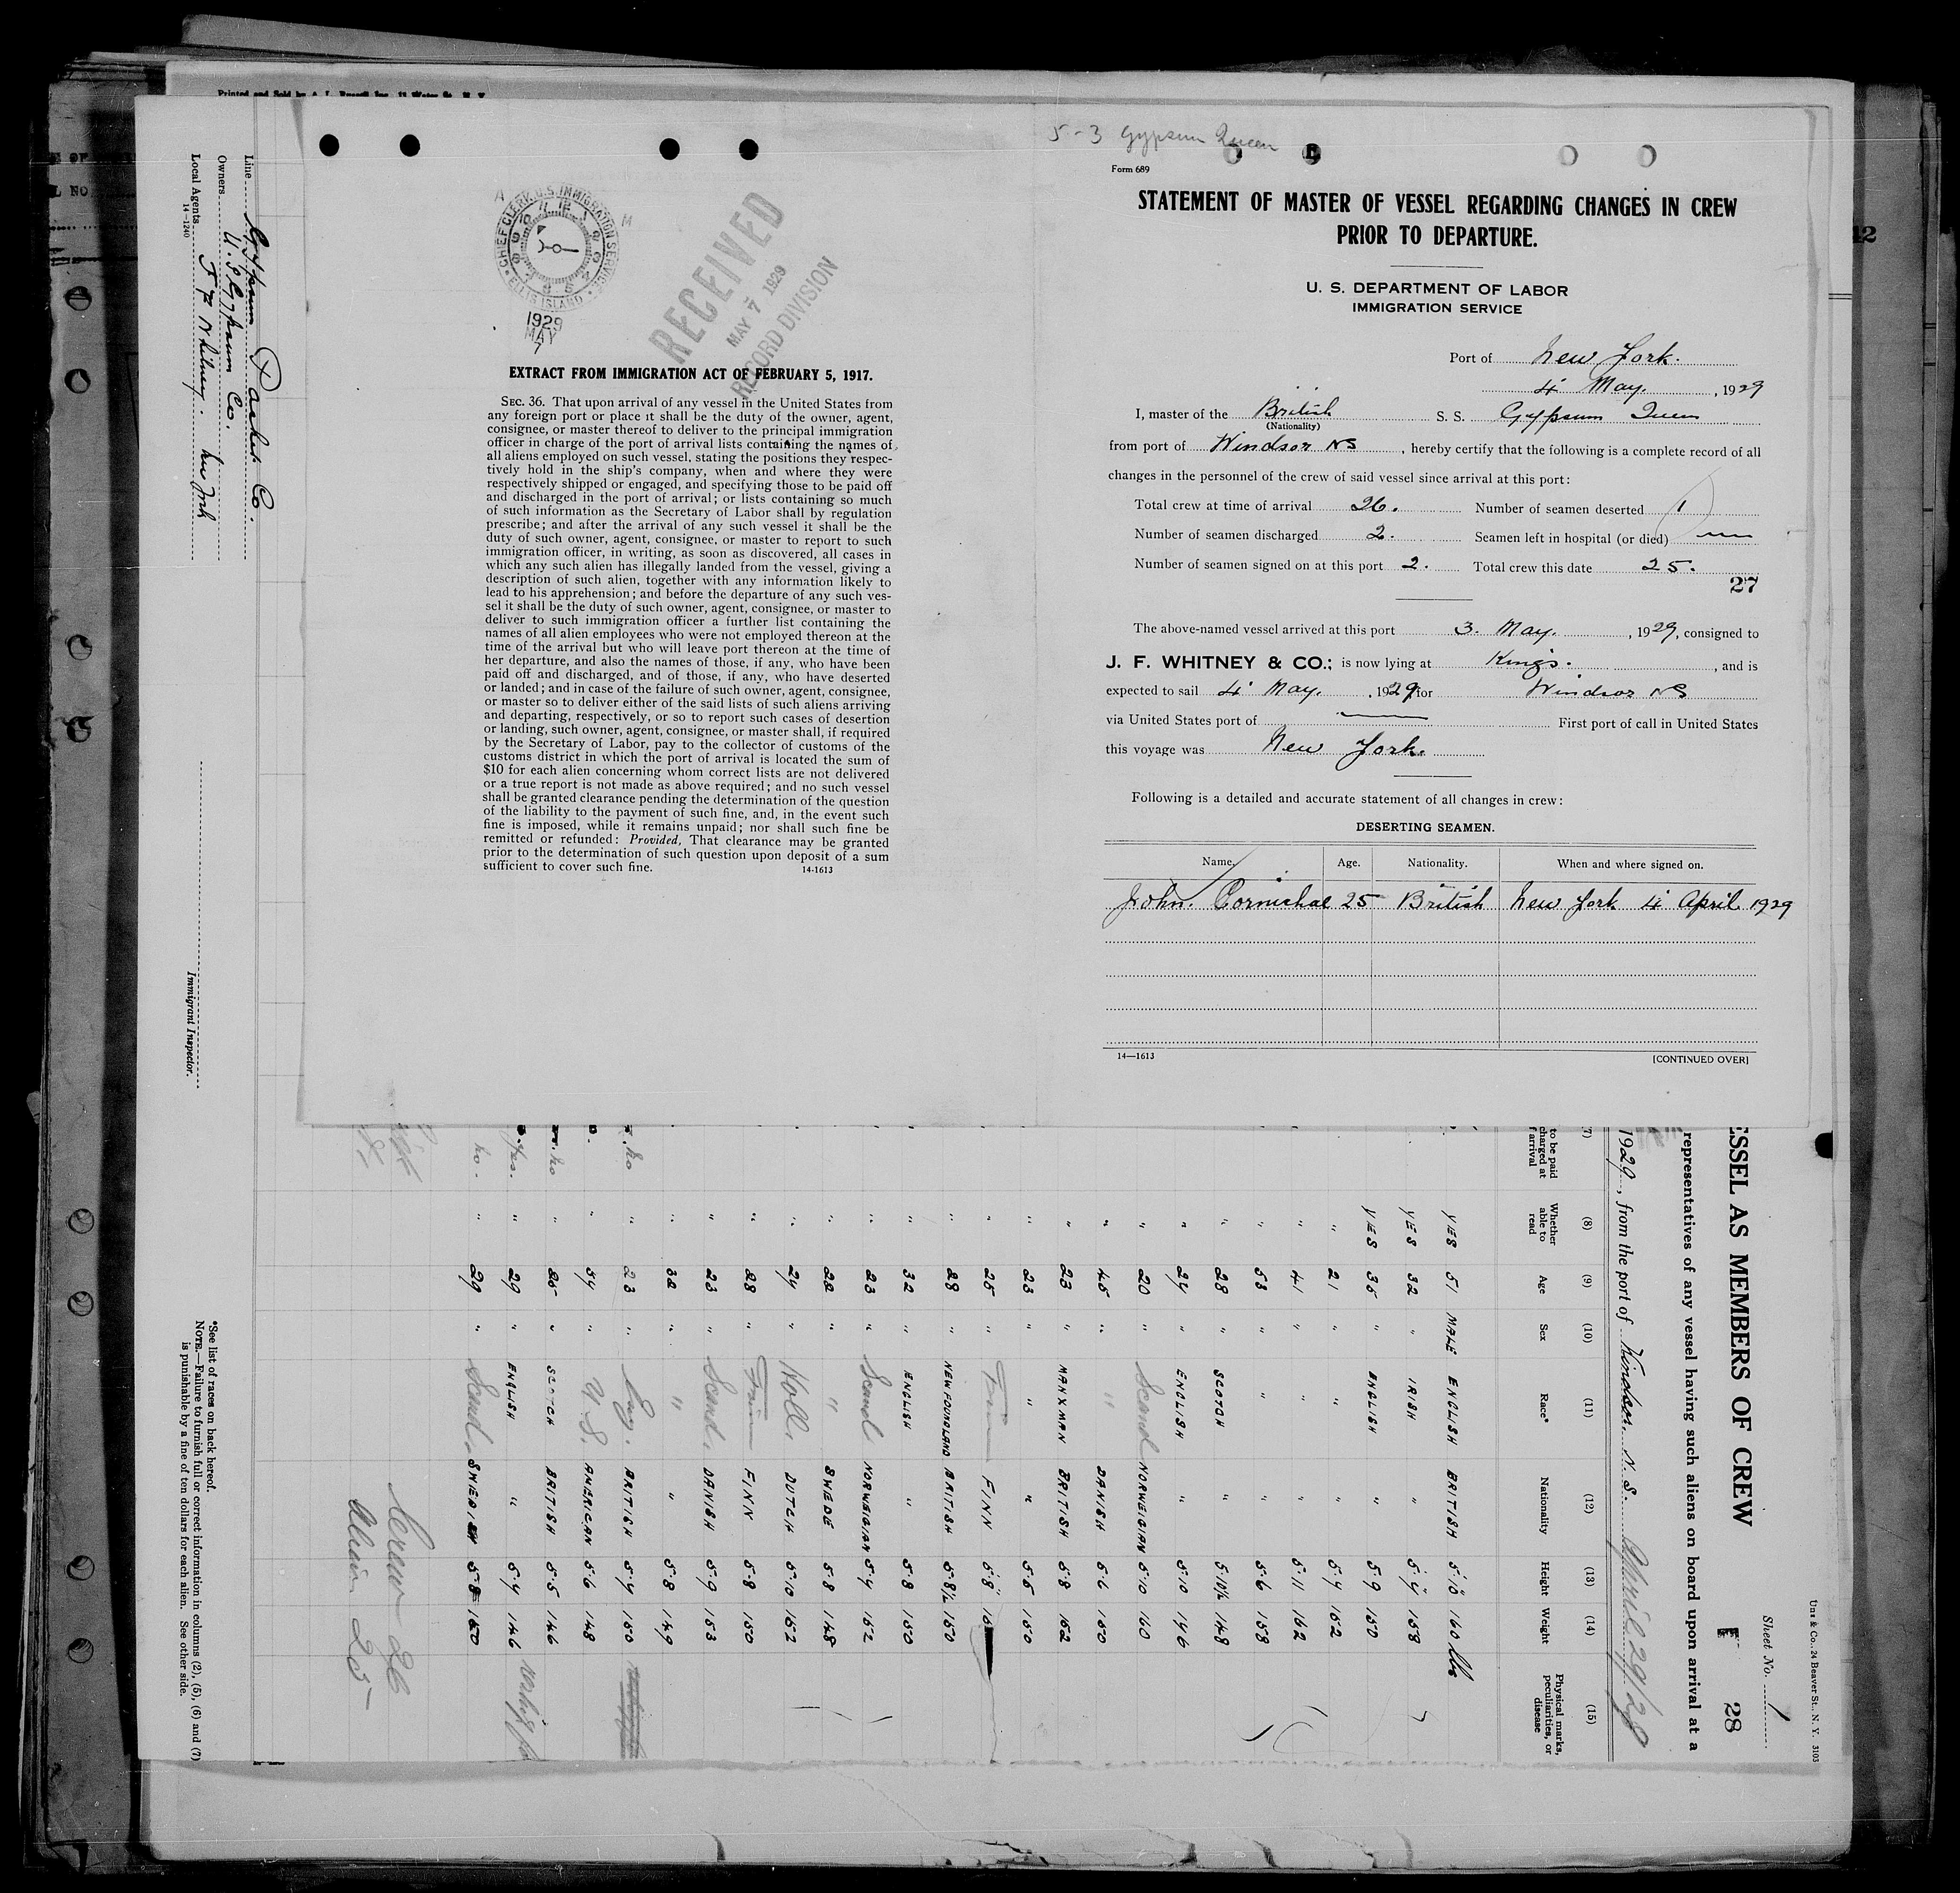 Printed and Sold by A. L. Russell Inc. 11 Water St. N. Y.
5-3 Gypsum Queen
Form 689
STATEMENT OF MASTER OF VESSEL REGARDING CHANGES IN CREW
PRIOR TO DEPARTURE.
U. S. DEPARTMENT OF LABOR
IMMIGRATION SERVICE
Port of New York.
4 May, 1929
I, master of the British S. S. Gypsum Queen
(Nationality)
from port of Windsor NS, hereby certify that the following is a complete record of all
changes in the personnel of the crew of said vessel since arrival at this port:
Total crew at time of arrival 26. Number of seamen deserted 1
Number of seamen discharged 2. Seamen left in hospital (or died) —
Number of seamen signed on at this port 2. Total crew this date 25.
27
The above-named vessel arrived at this port 3. May., 1929, consigned to
J. F. WHITNEY & CO.; is now lying at Kings., and is
expected to sail 4 May., 1929 for Windsor NS
via United States port of — First port of call in United States
this voyage was New York.
Following is a detailed and accurate statement of all changes in crew:
DESERTING SEAMEN.
Name. Age. Nationality. When and where signed on.
John. Cormichae 25 British New York 4 April 1929
14—1613 [CONTINUED OVER]
CHIEF CLERK, U.S. IMMIGRATION SERVICE
ELLIS ISLAND
1929
MAY
7
RECEIVED
MAY 7 1929
RECORD DIVISION
EXTRACT FROM IMMIGRATION ACT OF FEBRUARY 5, 1917.
SEC. 36. That upon arrival of any vessel in the United States from
any foreign port or place it shall be the duty of the owner, agent,
consignee, or master thereof to deliver to the principal immigration
officer in charge of the port of arrival lists containing the names of
all aliens employed on such vessel, stating the positions they respec-
tively hold in the ship's company, when and where they were
respectively shipped or engaged, and specifying those to be paid off
and discharged in the port of arrival; or lists containing so much
of such information as the Secretary of Labor shall by regulation
prescribe; and after the arrival of any such vessel it shall be the
duty of such owner, agent, consignee, or master to report to such
immigration officer, in writing, as soon as discovered, all cases in
which any such alien has illegally landed from the vessel, giving a
description of such alien, together with any information likely to
lead to his apprehension; and before the departure of any such ves-
sel it shall be the duty of such owner, agent, consignee, or master to
deliver to such immigration officer a further list containing the
names of all alien employees who were not employed thereon at the
time of the arrival but who will leave port thereon at the time of
her departure, and also the names of those, if any, who have been
paid off and discharged, and of those, if any, who have deserted
or landed; and in case of the failure of such owner, agent, consignee,
or master so to deliver either of the said lists of such aliens arriving
and departing, respectively, or so to report such cases of desertion
or landing, such owner, agent, consignee, or master shall, if required
by the Secretary of Labor, pay to the collector of customs of the
customs district in which the port of arrival is located the sum of
$10 for each alien concerning whom correct lists are not delivered
or a true report is not made as above required; and no such vessel
shall be granted clearance pending the determination of the question
of the liability to the payment of such fine, and, in the event such
fine is imposed, while it remains unpaid; nor shall such fine be
remitted or refunded: Provided, That clearance may be granted
prior to the determination of such question upon deposit of a sum
sufficient to cover such fine.
14-1613
Unz & Co., 24 Beaver St., N. Y. 3103
Sheet No. 1
28
ESSEL AS MEMBERS OF CREW
representatives of any vessel having such aliens on board upon arrival at a
1929, from the port of Windsor. N. S. April 29/29
(8) (9) (10) (11) (12) (13) (14) (15)
to be paid
charged at
f arrival
Whether able to read Age Sex Race* Nationality Height Weight Physical marks, peculiarities, or disease
YES 51 MALE ENGLISH BRITISH 5-10 160 lbs
YES 32 " IRISH " 5-4 158
YES 35 " ENGLISH " 5-9 150
" 21 " " " 5-4 152
" 41 " " " 5-11 162
" 53 " " " 5-6 158
" 28 " SCOTCH " 5-10½ 148
" 24 " ENGLISH " 5-10 146
" 20 " Scand NORWEIGIAN 5-10 160
" 45 " " DANISH 5-6 150
" 23 " MANXMAN BRITISH 5-8 152
" 23 " " " 5-5 150
" 25 " Finn FINN 5-8
" 28 " NEWFOUNDLAND BRITISH 5-8½ 150
" 32 " ENGLISH " 5-8 150
" 23 " Scand NORWEGIAN 5-4 152
" 22 " " SWEDE 5-8 148
" 24 " Holl. DUTCH 5-10 152
" 28 " Finn FINN 5-8 150
" 23 " Scand. DANISH 5-9 153
" 32 " " " 5-8 149
no " 23 " Eng. BRITISH 5-4 150
" 54 " U.S. AMERICAN 5-6 148
no " 25 " SCOTCH BRITISH 5-5 146
yes. " 29 " ENGLISH " 5-4 146
no. " 29 " Scand. SWEDISH 5-8 150
Crew 26
Alien 25
Line Gypsum Packet Co.
Owners U. S. Gypsum Co.
Local Agents J F Whitney. New York
14—1240
Immigrant Inspector.
*See list of races on back hereof.
NOTE.—Failure to furnish full or correct information in columns (2), (5), (6) and (7)
is punishable by a fine of ten dollars for each alien. See other side.